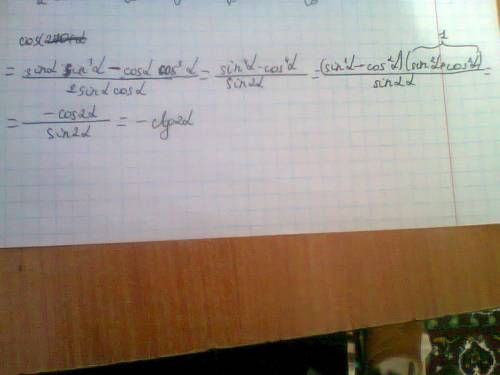 cos(
= (sinα sin³α − cosα cos³α)/(2sinα cosα) = (sin⁴α − cos⁴α)/(sin2α) = ((sin²α − cos²α)(sin²α + cos²α))/(sin2α) =
1
= (−cos2α)/(sin2α) = −ctg2α